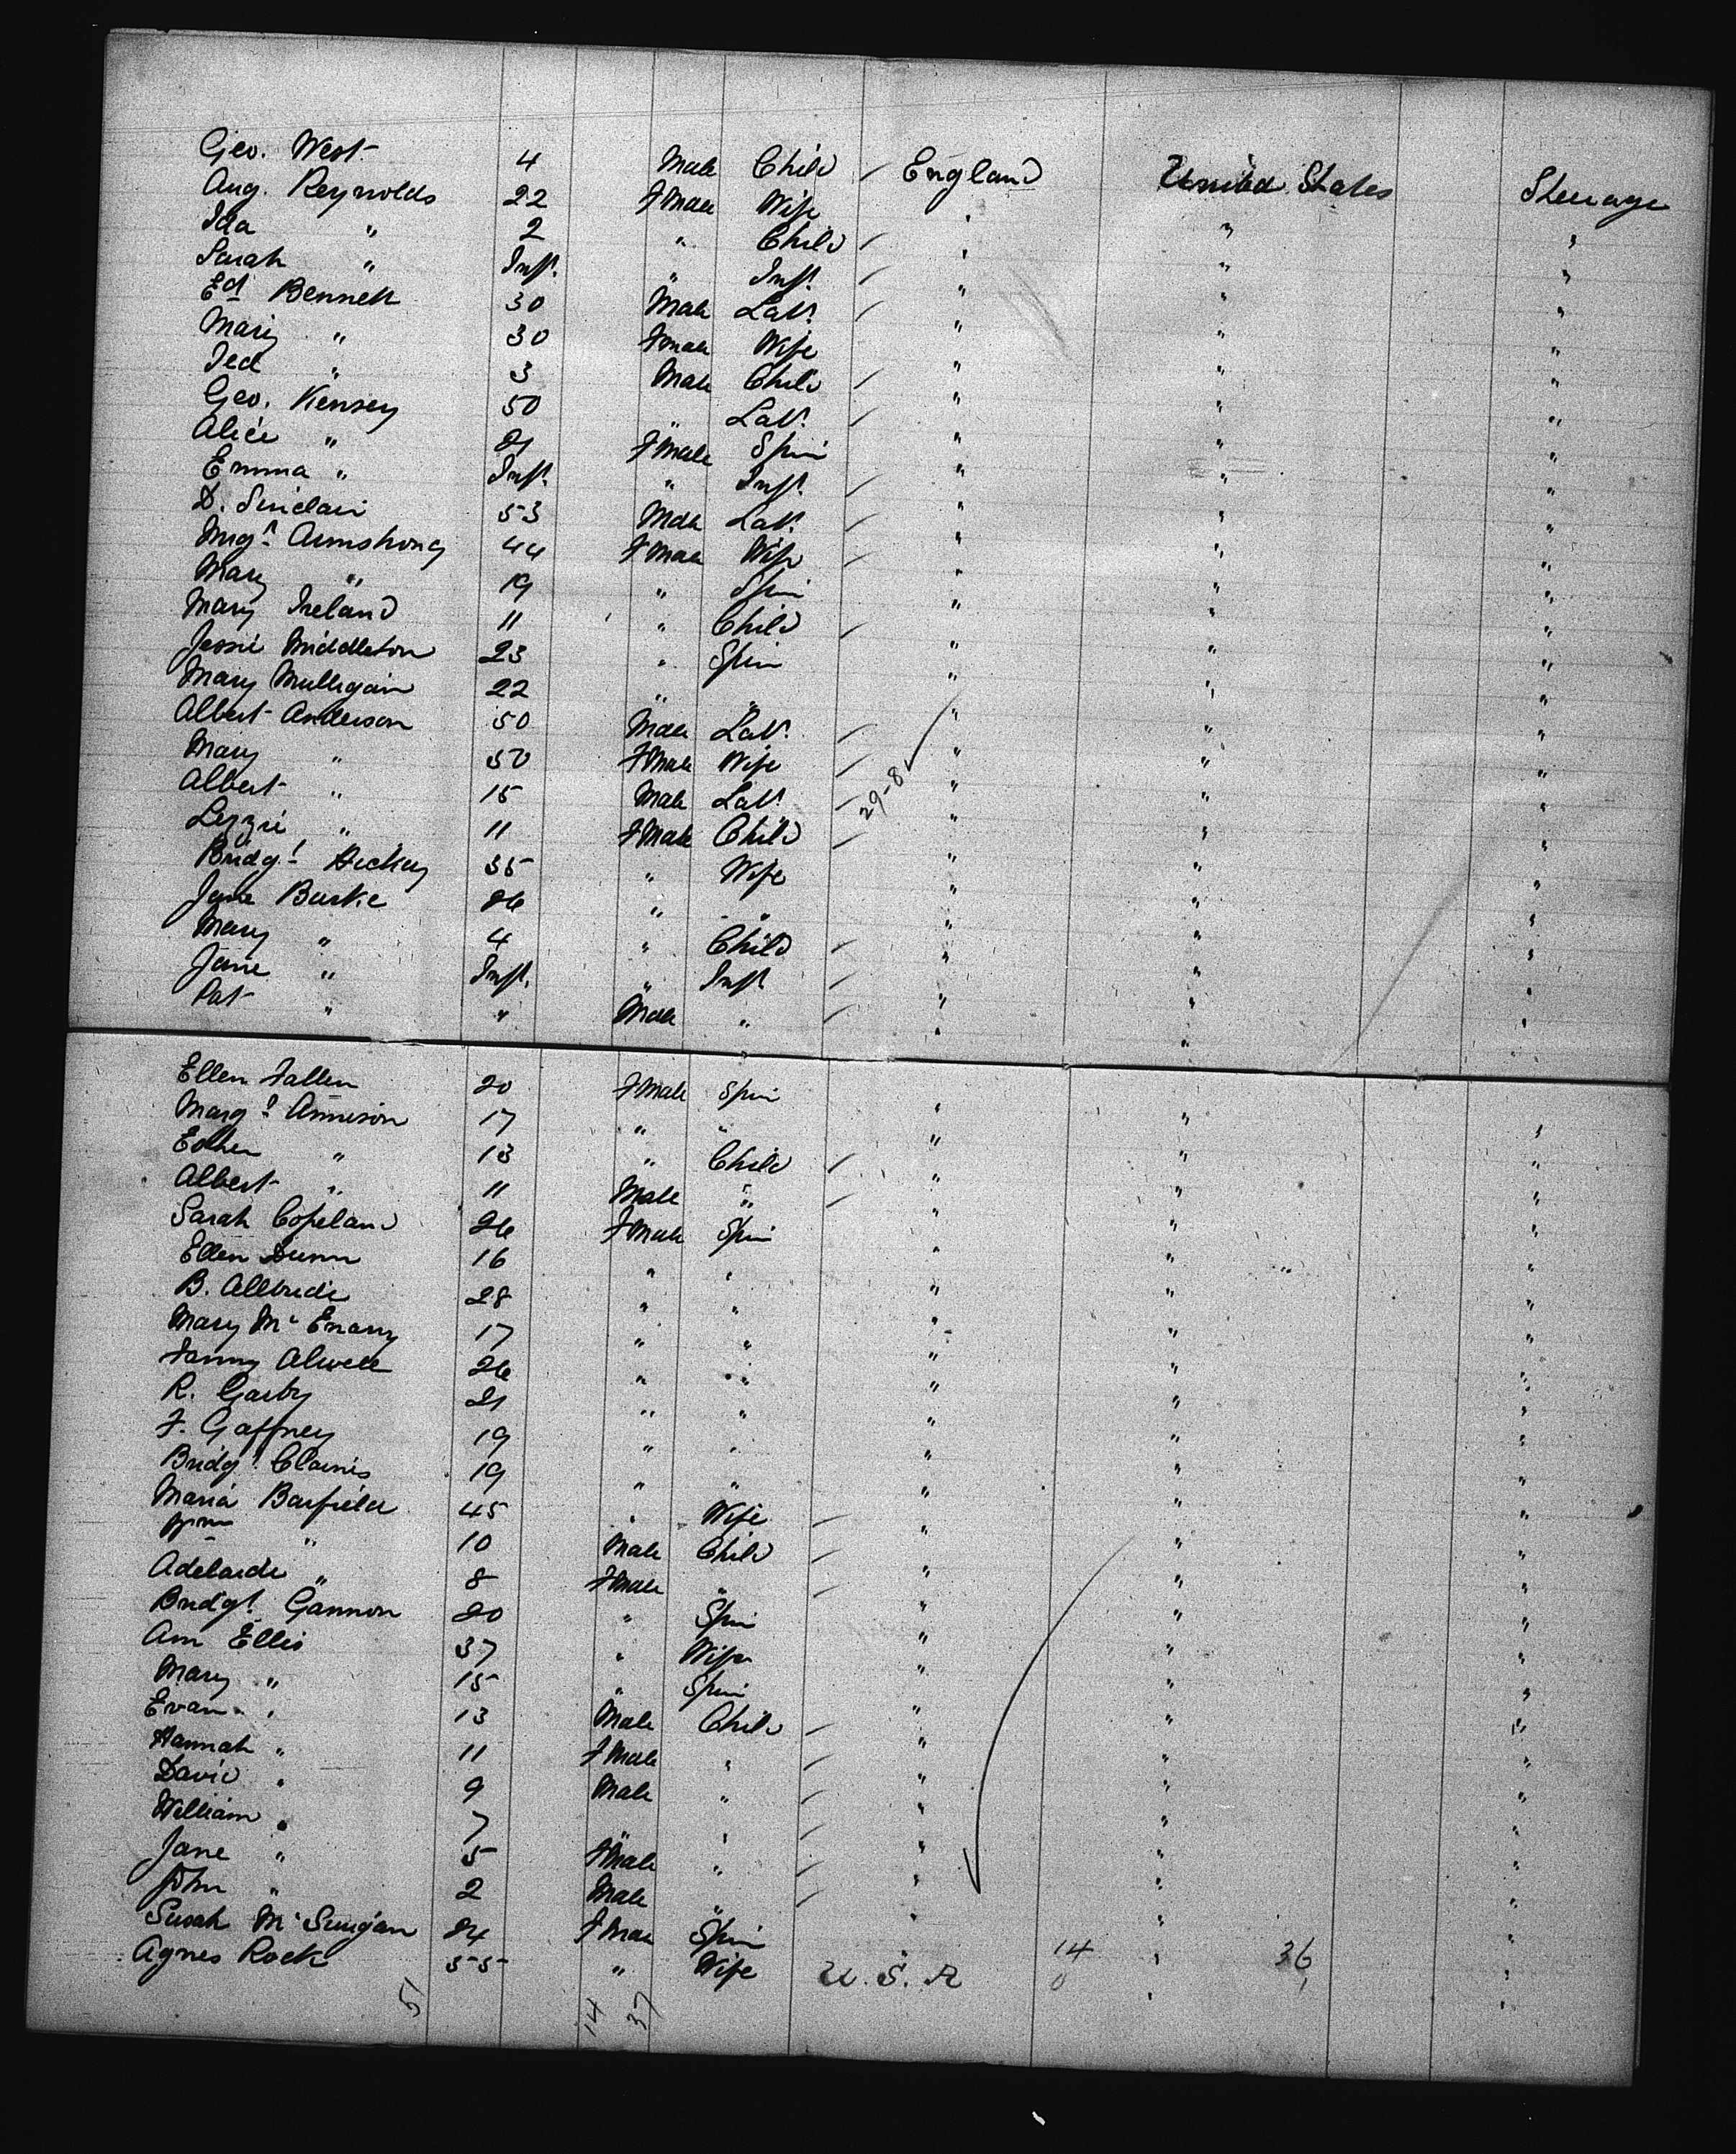 Geo. West 4 Male Child England United States Steerage
Aug. Reynolds 22 Fmale Wife " " "
Ida " 2 " Child " " "
Sarah " Inft. " Inft. " " "
Ed Bennett 30 Male Lab. " " "
Mary " 30 Fmale Wife " " "
Ted " 3 Male Child " " "
Geo. Kensey 50 " Lab. " " "
Alice " 21 Fmale Spin " " "
Emma " Inft. " Inft. " " "
D. Sinclair 53 Male Lab. " " "
Mrgt Armstrong 44 Fmale Wife " " "
Mary " 19 " Spin " " "
Mary Ireland 11 " Child " " "
Jessie Middleton 23 " Spin " " "
Mary Mulligan 22 " " " " "
Albert Anderson 50 Male Lab. " " "
Mary " 50 Fmale Wife " " "
Albert " 15 Male Lab. 29-8 " " "
Lizzie " 11 Fmale Child " " "
Bridgt Hickey 35 " Wife " " "
Jane Burke 26 " " " " "
Mary " 4 " Child " " "
Jane " Inft. " Inft " " "
Pat " " Male " " " "
Ellen Fallen 20 Fmale Spin " " "
Margt Annison 17 " " " " "
Esther " 13 " Child " " "
Albert " 11 Male " " " "
Sarah Copeland 26 Fmale Spin " " "
Ellen Dunn 16 " " " " "
B. 28 " " " " "
Mary Mc Enany 17 " " " " "
Fanny 26 " " " " "
R. Garby 21 " " " " "
F. Gaffney 19 " " " " "
Bridgt 19 " " " " "
Maria Barfield 45 " Wife " " "
Wm " 10 Male Child " " "
Adelaide " 8 Fmale " " " "
Bridgt. Gannon 20 " Spin " " "
Ann Ellis 37 " Wife " " "
Mary " 15 " Spin " " "
Evan " 13 Male Child " " "
Hannah " 11 Fmale " " " "
David " 9 Male " " " "
William " 7 " " " " "
Jane " 5 Fmale " " " "
John " 2 Male " " " "
Sarah 24 Fmale Spin " " "
Agnes Rock 55 " Wife U.S.A 14 0 " 36 1 "
51 14 37